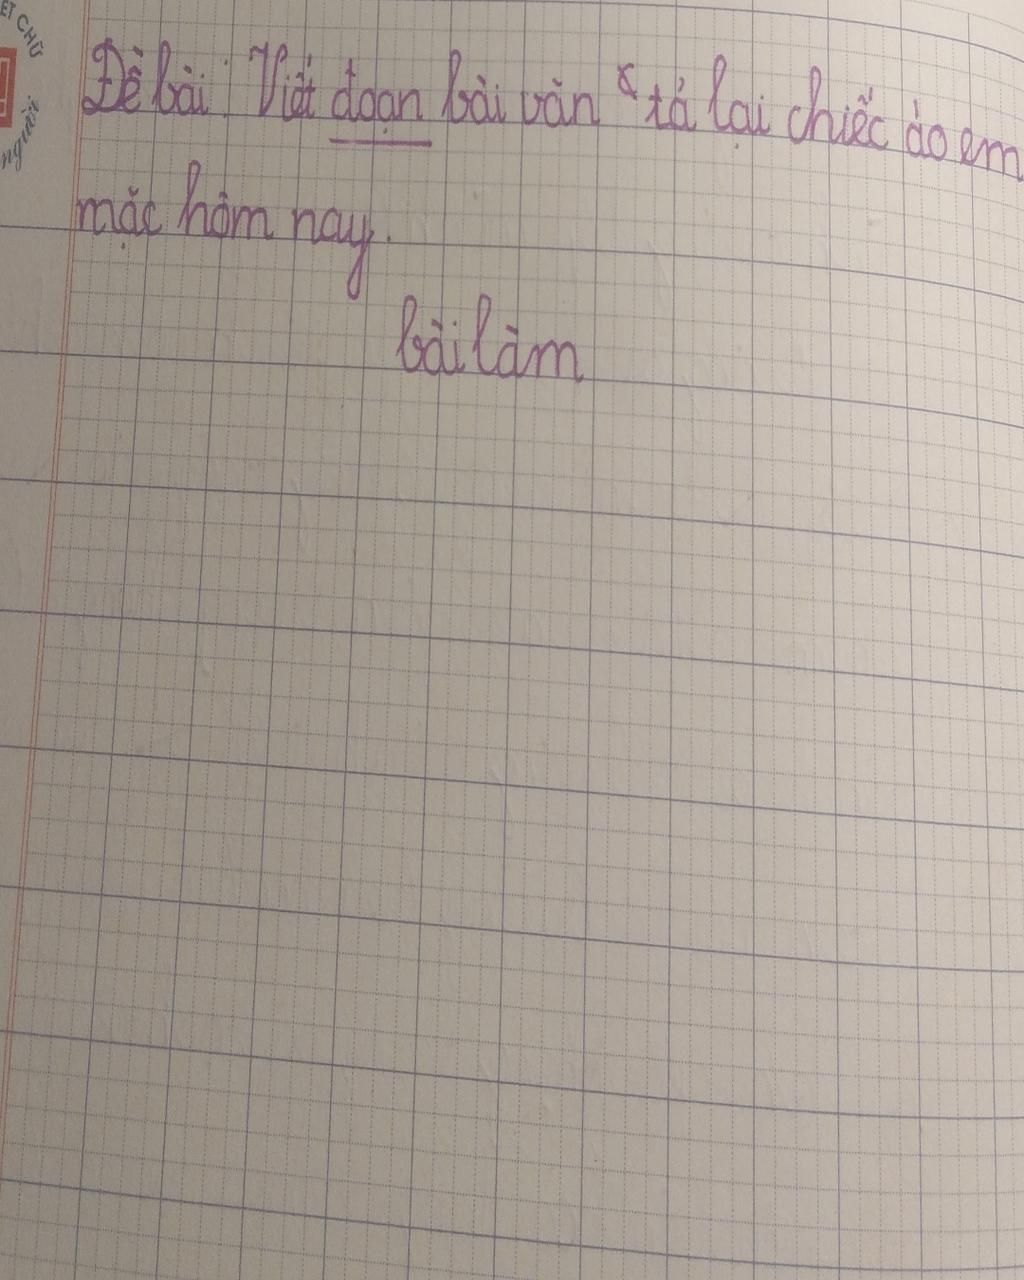 ẾT CHỮ
người
Đề bài: Viết đoạn bài văn " tả lại chiếc áo em
mặc hôm nay.
bài làm